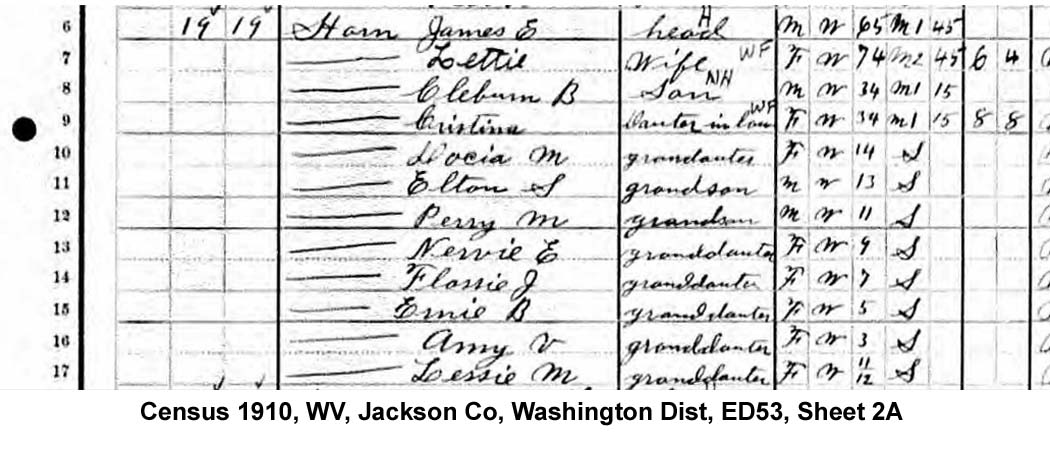 6 19 19 Horn James E head H M W 65 M1 45
7 Lettie Wife WF F W 74 M2 45 6 4
8 Cleburn B Son NH M W 34 M1 15
9 Cristina dauter in law WF F W 34 M1 15 8 8
10 Docia M grandauter F W 14 S
11 Elton S grandson M W 13 S
12 Perry M grandson M W 11 S
13 Nervie E granddauter F W 9 S
14 Flossie J granddauter F W 7 S
15 Ernie B granddauter F W 5 S
16 Amy V granddauter F W 3 S
17 Lessie M granddauter F W 11/12 S
Census 1910, WV, Jackson Co, Washington Dist, ED53, Sheet 2A